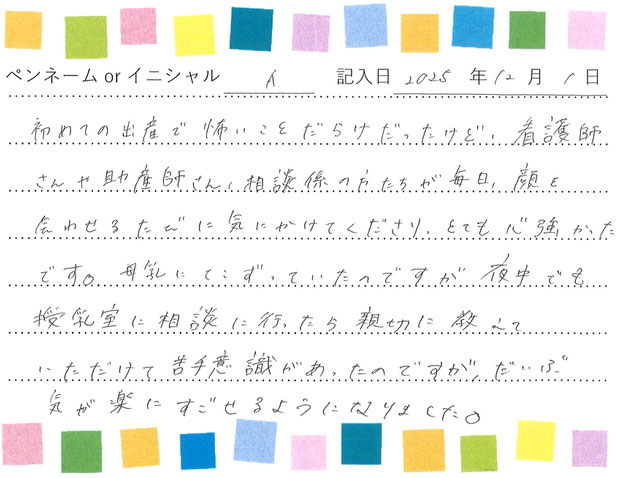 ペンネーム or イニシャル A 記入日 2025 年 12 月 1 日
初めての出産で怖いことだらけだったけど、看護師
さんや助産師さん、相談係の方たちが毎日、顔を
合わせるたびに気にかけてくださり、とても心強かった
です。母乳にてこずっていたのですが夜中でも
授乳室に相談に行ったら親切に教えて
いただけて苦手意識があったのですが、だいぶ
気が楽にすごせるようになりました。